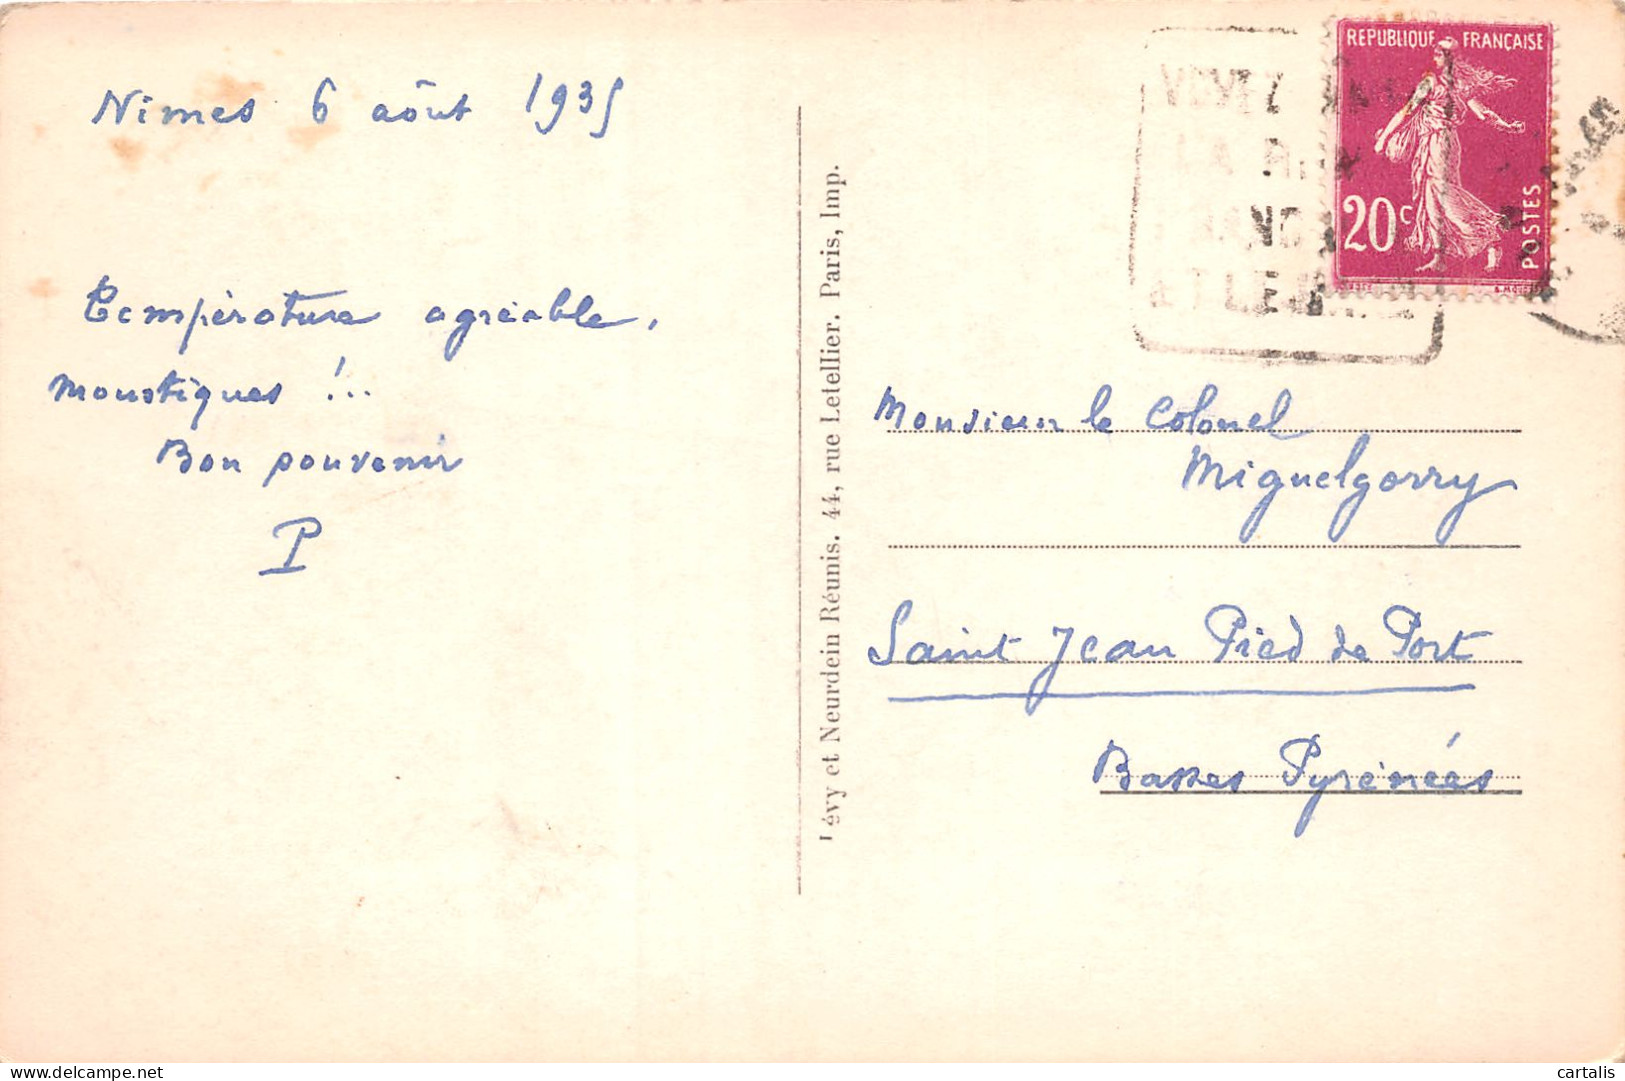 Nimes 6 aôut 1935
Température agréable,
moustiques !...
Bon souvenir
P
Lévy et Neurdein Réunis. 44, rue Letellier. Paris, Imp.
REPUBLIQUE FRANÇAISE
20c
POSTES
Monsieur le Colonel
Miguelgorry
Saint Jean Pied de Port
Basses Pyrénées
delcampe.net
cartalis